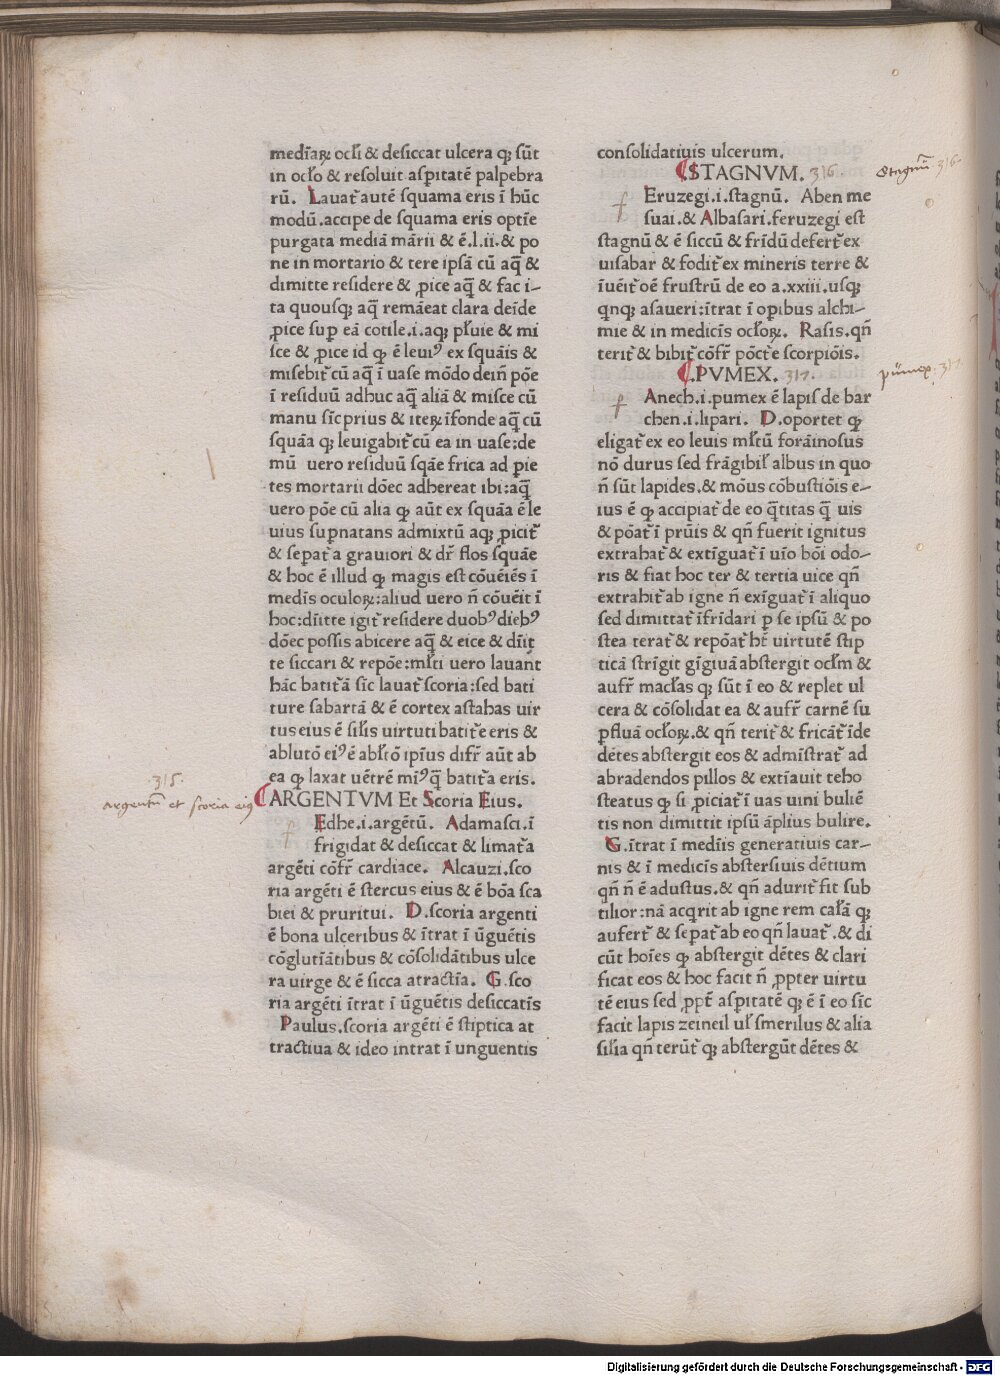 medīaꝝ ocl̄i & desiccat ulcera qꝫ sūt
in ocl̄o & resoluit asp̄itatē palpebra
rū. Lauat᷑ autē squama eris ī hūc
modū.accipe de squama eris optīe
purgata mediā mārii & ē.l.ii.& po
ne in mortario & tere ipsā cū aq̄ &
dimitte residere & ꝓice aq̄ & fac i-
ta quousqꝫ aq̄ remāeat clara deīde
ꝓice sup eā cotile.i.aqꝫ pl̄uie & mi
sce & ꝓice id ꝙ ē leuiꝰ ex squāis &
misebit᷑ cū aq̄ ī uase mōdo dein̄ pōe
ī residuū adhuc aq̄ aliā & misce cū
manu sīc prius & iteꝝ īfonde aq̄ cū
squāa qꝫ leuigabit᷑ cū ea in uase:de
mū uero residuū sqāe frica ad ꝑie
tes mortarii dōec adhereat ibi:aq̄
uero pōe cū alia ꝙ aūt ex squāa ē le
uius suꝑnatans admixtū aqꝫ ꝓicit᷑
& seꝑat᷑ a grauiori & dr̄ flos squāe
& hoc ē illud ꝙ magis est cōuēiēs ī
medīs oculoꝝ:aliud uero n̄ cōuēit ī
hoc:dīitte igit᷑ residere duobꝰ diebꝰ
dōec possis abicere aq̄ & eice & dīit
te siccari & repōe:ml̄ti uero lauant
hāc batit᷑ā sīc lauat᷑ scoria:sed bati
ture sabartā & ē cortex astahas uir
tus eius ē sil̄is uirtuti batit᷑e eris &
ablutō eiꝰ ē abl̄tō ip̄ius difr̄ aūt ab
ea ꝙ laxat uētrē miꝰ q̄ batit᷑a eris.
ARGENTVM Et Scoria Eius.
Edhe.i.argētū. Adamasci.ī
frigidat & desiccat & limat᷑a
argēti cōfr̄ cardiace. Alcauzi.sco
ria argēti ē stercus eius & ē bōa sca
biei & pruritui. D.scoria argenti
ē bona ulceribus & ītrat ī ūguētis
cōglutīātibus & cōsolidātibus ulce
ra uirge & ē sicca atractīa. G.sco
ria argēti ītrat ī ūguētis desiccatīs
Paulus.scoria argēti ē stiptica at
tractiua & ideo intrat ī unguentis
315.
argentū et scoria eiꝰ
consolidatiuis ulcerum.
STAGNVM. 316.
Eruzegi.i.stagnū. Aben me
suai.& Albasari.feruzegi est
stagnū & ē siccū & frīdū defert᷑ ex
uisabar & fodit᷑ ex mineris terre &
īuēit᷑ oē frustrū de eo a.xxiii.usqꝫ
qnqꝫ asaueri:ītrat ī opibus alchi-
mie & in medicīs ocl̄oꝝ. Rasis.qn̄
terit᷑ & bibit᷑ cōfr̄ pōct᷑e scorpiōis.
PVMEX. 317.
Anech.i.pumex ē lapis de bar
chen.i.lipari. D.oportet ꝙ
eligat᷑ ex eo leuis ml̄tū forāīnosus
nō durus sed frāgibil̄ albus in quo
n̄ sūt lapides.& mōus cōbustiōis e-
ius ē ꝙ accipiat᷑ de eo q̄titas q̄ uis
& pōat᷑ ī prūis & qn̄ fuerit ignitus
extrahat᷑ & extīguat᷑ ī uīo bōi odo-
ris & fiat hoc ter & tertia uice qn̄
extrahit᷑ ab igne n̄ exīguat᷑ ī aliquo
sed dimittat᷑ īfrīdari p se ipsū & po
stea terat᷑ & repōat᷑ ht̄ uirtutē stip
ticā strīgit gīgiuā abstergit ocl̄m &
aufr̄ macl̄as qꝫ sūt ī eo & replet ul
cera & cōsolidat ea & aufr̄ carnē su
ꝑfluā ocl̄oꝝ.& qn̄ terit᷑ & fricāt᷑ īde
dētes abstergit eos & admīstrat᷑ ad
abradendos pillos & extīauit teho
steatus ꝙ si ꝓiciat᷑ ī uas uini buliē
tis non dimittit ipsū āplius bulire.
G.ītrat ī mediīs generatiuis car-
nis & ī medicīs abstersiuis dētium
qn̄ n̄ ē adustus.& qn̄ adurit᷑ fit sub
tilior:nā acqrit ab igne rem cal̄ā qꝫ
aufert᷑ & seꝑat᷑ ab eo qn̄ lauat᷑.& di
cūt hoīes ꝙ abstergit dētes & clari
ficat eos & hoc facit n̄ ꝓpter uirtu
tē eius sed ꝓpt᷑ asꝑitatē qꝫ ē ī eo sīc
facit lapis zeineil ul̄ smerilus & alia
sil̄ia qn̄ terūt᷑ qꝫ abstergūt dētes &
Stagnū 316.
pūmex. 317.
Digitalisierung gefördert durch die Deutsche Forschungsgemeinschaft - DFG